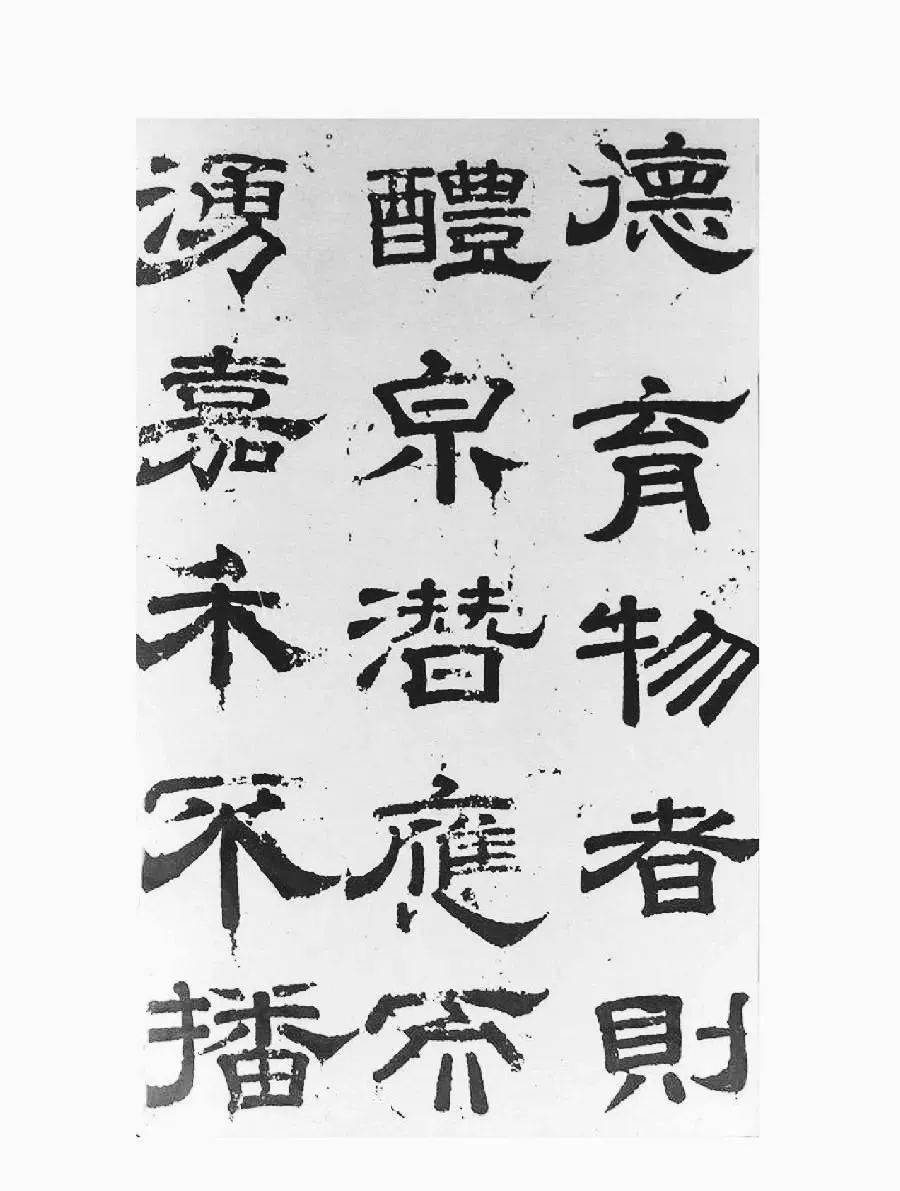 德育物者則
醴泉潜應而
湧嘉禾不播